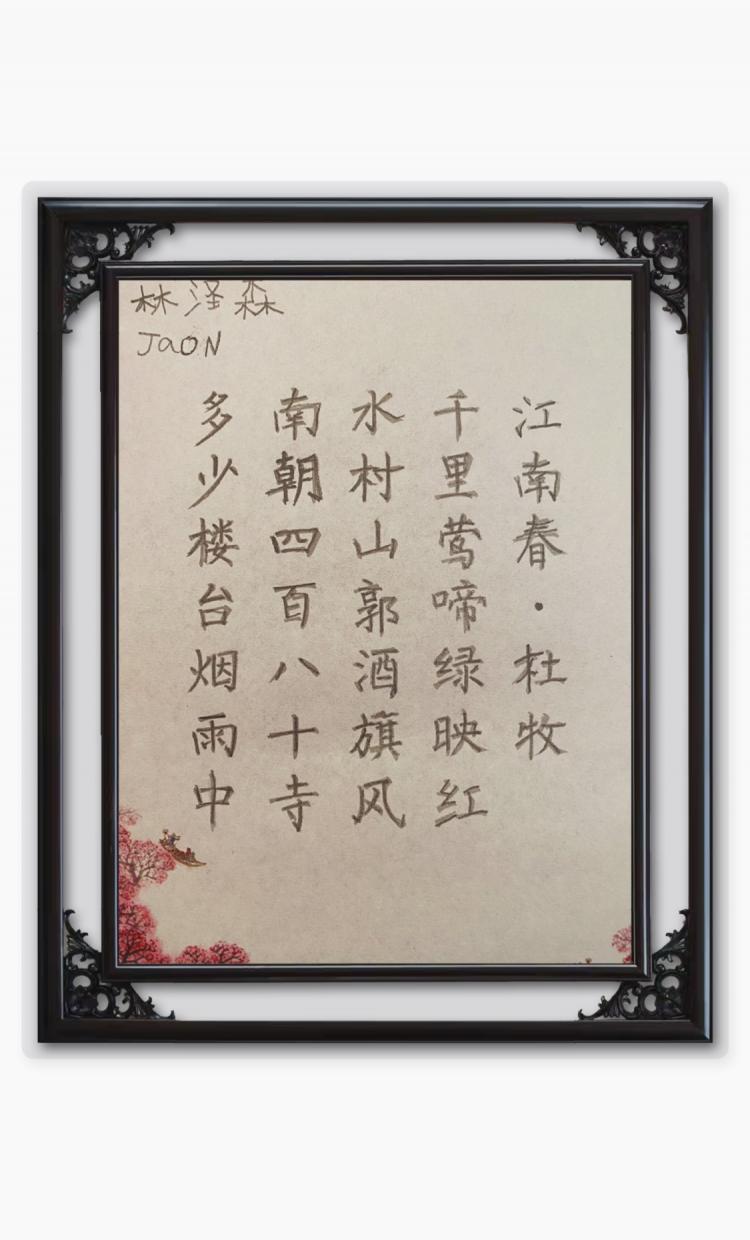 林泽森
JaoN
江南春·杜牧
千里莺啼绿映红
水村山郭酒旗风
南朝四百八十寺
多少楼台烟雨中